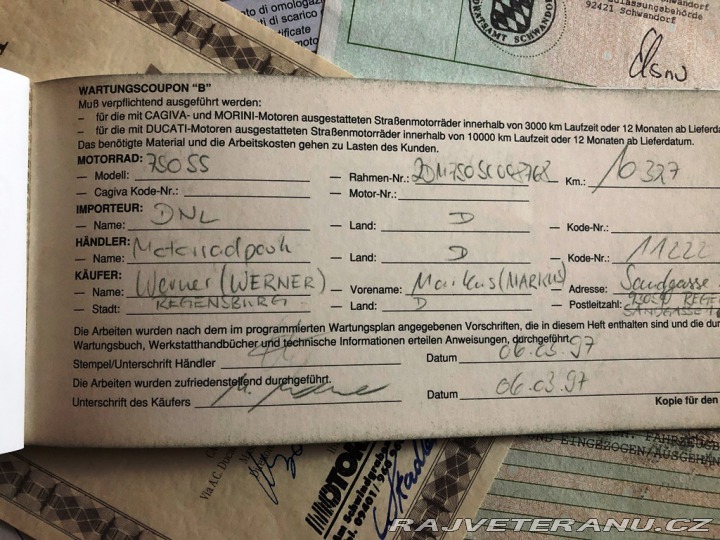 to di omologaz
ti di scarico
rtificate
ORATSAMT SCHWANDORF
Zulassungsbehörde
92421 Schwandorf
WARTUNGSCOUPON "B"
Muß verpflichtend ausgeführt werden:
– für die mit CAGIVA- und MORINI-Motoren ausgestatteten Straßenmotorräder innerhalb von 3000 km Laufzeit oder 12 Monaten ab Lieferda
– für die mit DUCATI-Motoren ausgestatteten Straßenmotorräder innerhalb von 10000 km Laufzeit oder 12 Monaten ab Lieferdatum.
Das benötigte Material und die Arbeitskosten gehen zu Lasten des Kunden.
MOTORRAD:
— Modell: 750 SS — Rahmen-Nr.: Km.: 10 327
— Cagiva Kode-Nr.: — Motor-Nr.:
IMPORTEUR:
— Name: DNL — Land: D — Kode-Nr.:
HÄNDLER:
— Name: — Land: D — Kode-Nr.: 11222
KÄUFER:
— Name: Werner (WERNER) — Vorename: Markus (MARKUS) — Adresse: Sandgasse
— Stadt: REGENSBURG — Land: D — Postleitzahl: REGE
SANDGASSE
Die Arbeiten wurden nach dem im programmierten Wartungsplan angegebenen Vorschriften, die in diesem Heft enthalten sind und die du
Wartungsbuch, Werkstatthandbücher und technische Informationen erteilen Anweisungen, durchgeführt.
Stempel/Unterschrift Händler Datum 06.03.97
Die Arbeiten wurden zufriedenstellend durchgeführt.
Unterschrift des Käufers Datum 06.03.97
Kopie für den
Via A.C.
MOTOR
Am Schwaldgraben
UND EINGEZOGEN/AUSGEHÄN
RAJVETERANU.CZ